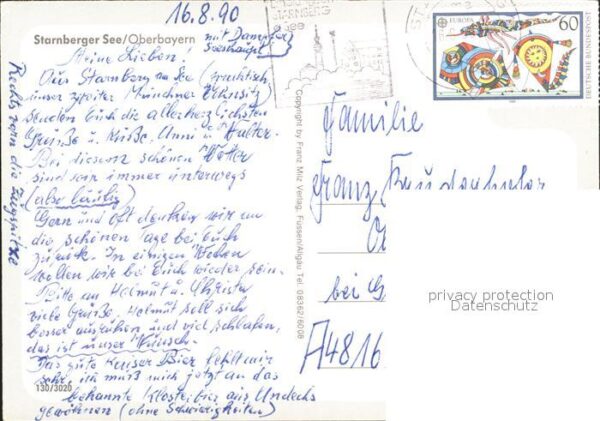 16.8.90
STARNBERG
See
EUROPA
60
DEUTSCHE BUNDESPOST
Starnberger See/Oberbayern
mit Dampfer
Seeshaupt
Meine Lieben!
Aus Starnberg am See (praktisch
unser zweiter Münchner Wohnsitz)
senden Euch die allerherzlichsten
Grüße u. Küße, Anni u. Walter.
Bei diesem schönen Wetter
sind wir immer unterwegs
(also läufig)
Gern und oft denken wir an
die schönen Tage bei Euch
zurück. In einigen Wochen
wollen wir bei Euch wieder sein.
Bitte an Helmut u. Christa
viele Grüße. Helmut soll sich
besser ausruhen und viel schlafen,
das ist unser Wunsch.
Das gute Kaiser Bier fehlt mir
sehr, ich muß mich jetzt an das
bekannte Klosterbier aus Andechs
gewöhnen (ohne Schwierigkeiten)
130/3020
Rechts vorn die Zugspitze
Copyright by Franz Milz Verlag, Füssen/Allgäu Tel. 08362/6008
Familie
Franz
bei G
A4816
privacy protection
Datenschutz